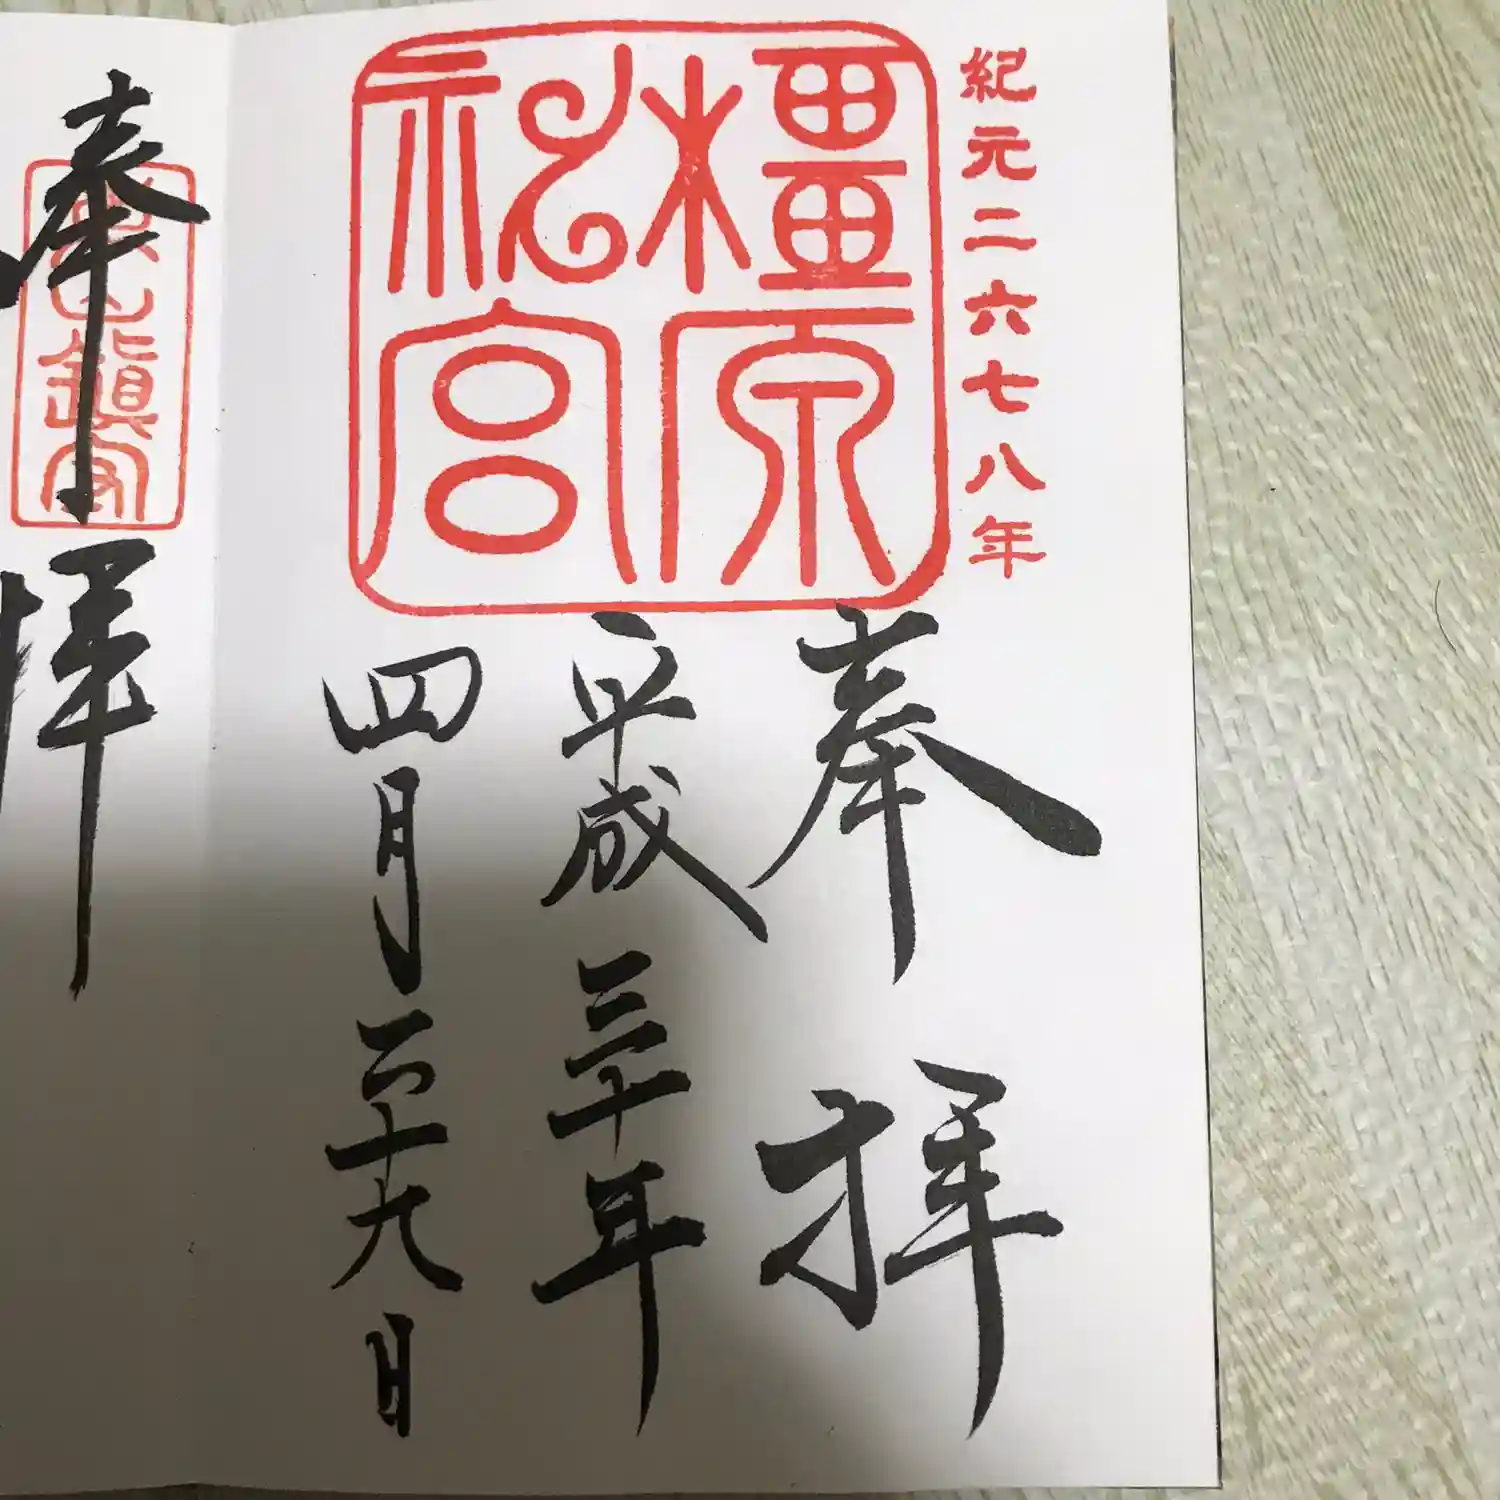 紀元二六七八年
橿原
神宮
奉拝
平成三十年
四月二十九日
奉拝
鎮守